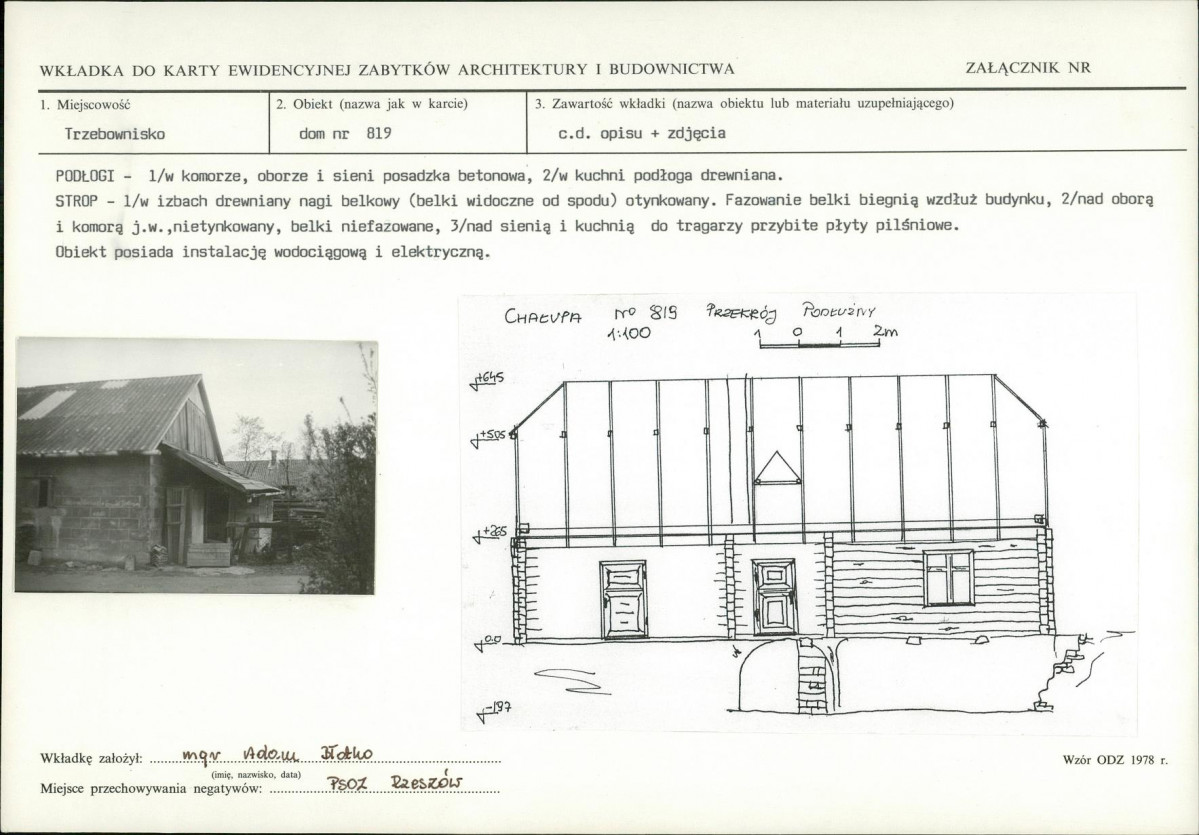 WKŁADKA DO KARTY EWIDENCYJNEJ ZABYTKÓW ARCHITEKTURY I BUDOWNICTWA ZAŁĄCZNIK NR
1. Miejscowość 2. Obiekt (nazwa jak w karcie) 3. Zawartość wkładki (nazwa obiektu lub materiału uzupełniającego)
Trzebownisko dom nr 819 c.d. opisu + zdjęcia
PODŁOGI - 1/w komorze, oborze i sieni posadzka betonowa, 2/w kuchni podłoga drewniana.
STROP - 1/w izbach drewniany nagi belkowy (belki widoczne od spodu) otynkowany. Fazowanie belki biegnią wzdłuż budynku, 2/nad oborą
i komorą j.w.,nietynkowany, belki niefazowane, 3/nad sienią i kuchnią do tragarzy przybite płyty pilśniowe.
Obiekt posiada instalację wodociągową i elektryczną.
CHAŁUPA NO 819 PRZEKRÓJ PODŁUŻNY
1:100
1 0 1 2m
+645
+505
+265
0.0
-197
Wkładkę założył: mgr Adam
(imię, nazwisko, data)
Miejsce przechowywania negatywów: PSOZ Rzeszów
Wzór ODZ 1978 r.